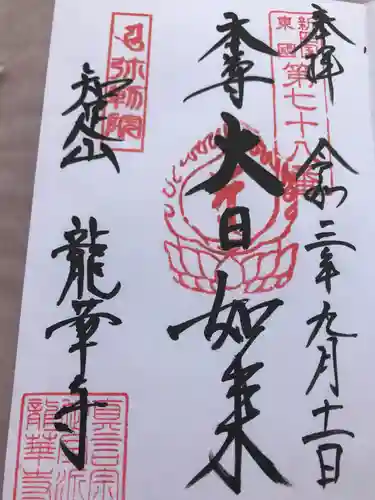 奉拝 令和三年九月十一日
新四国
東國
第七十八番
本尊 大日如来
弥勒院
智足山 龍華寺
真言宗
龍華寺